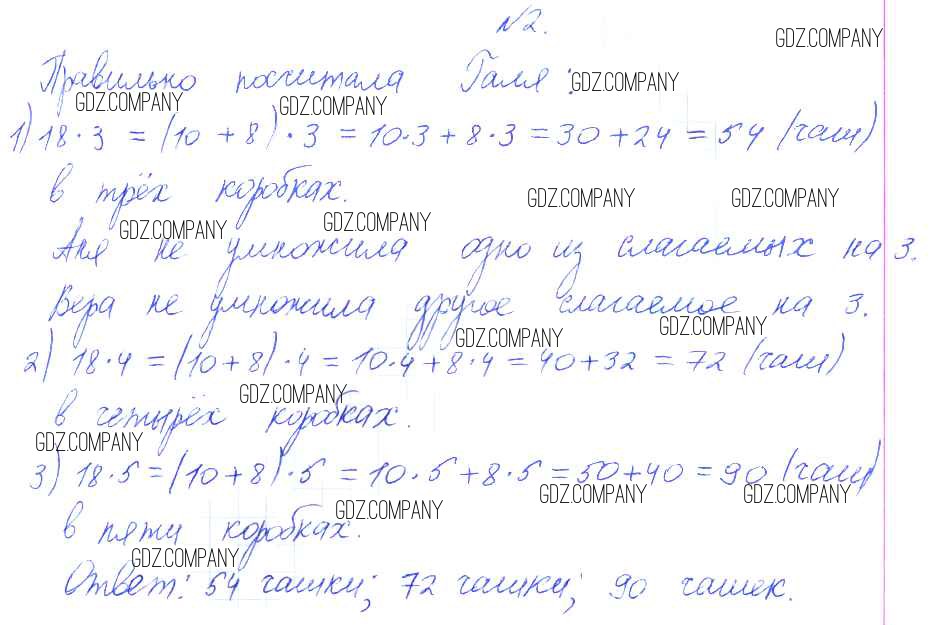 №2.
GDZ.COMPANY
Правильно посчитала Галя:
GDZ.COMPANY
GDZ.COMPANY GDZ.COMPANY
1) 18·3 = (10 + 8)·3 = 10·3 + 8·3 = 30 + 24 = 54 (чаш)
в трёх коробках.
GDZ.COMPANY GDZ.COMPANY
GDZ.COMPANY GDZ.COMPANY
Аня не умножила одно из слагаемых на 3.
Вера не умножила другое слагаемое на 3.
GDZ.COMPANY GDZ.COMPANY
2) 18·4 = (10 + 8)·4 = 10·4 + 8·4 = 40 + 32 = 72 (чаш)
GDZ.COMPANY
в четырёх коробках.
GDZ.COMPANY
3) 18·5 = (10 + 8)·5 = 10·5 + 8·5 = 50 + 40 = 90 (чаш)
GDZ.COMPANY GDZ.COMPANY
GDZ.COMPANY
в пяти коробках.
GDZ.COMPANY
Ответ: 54 чашки; 72 чашки; 90 чашек.